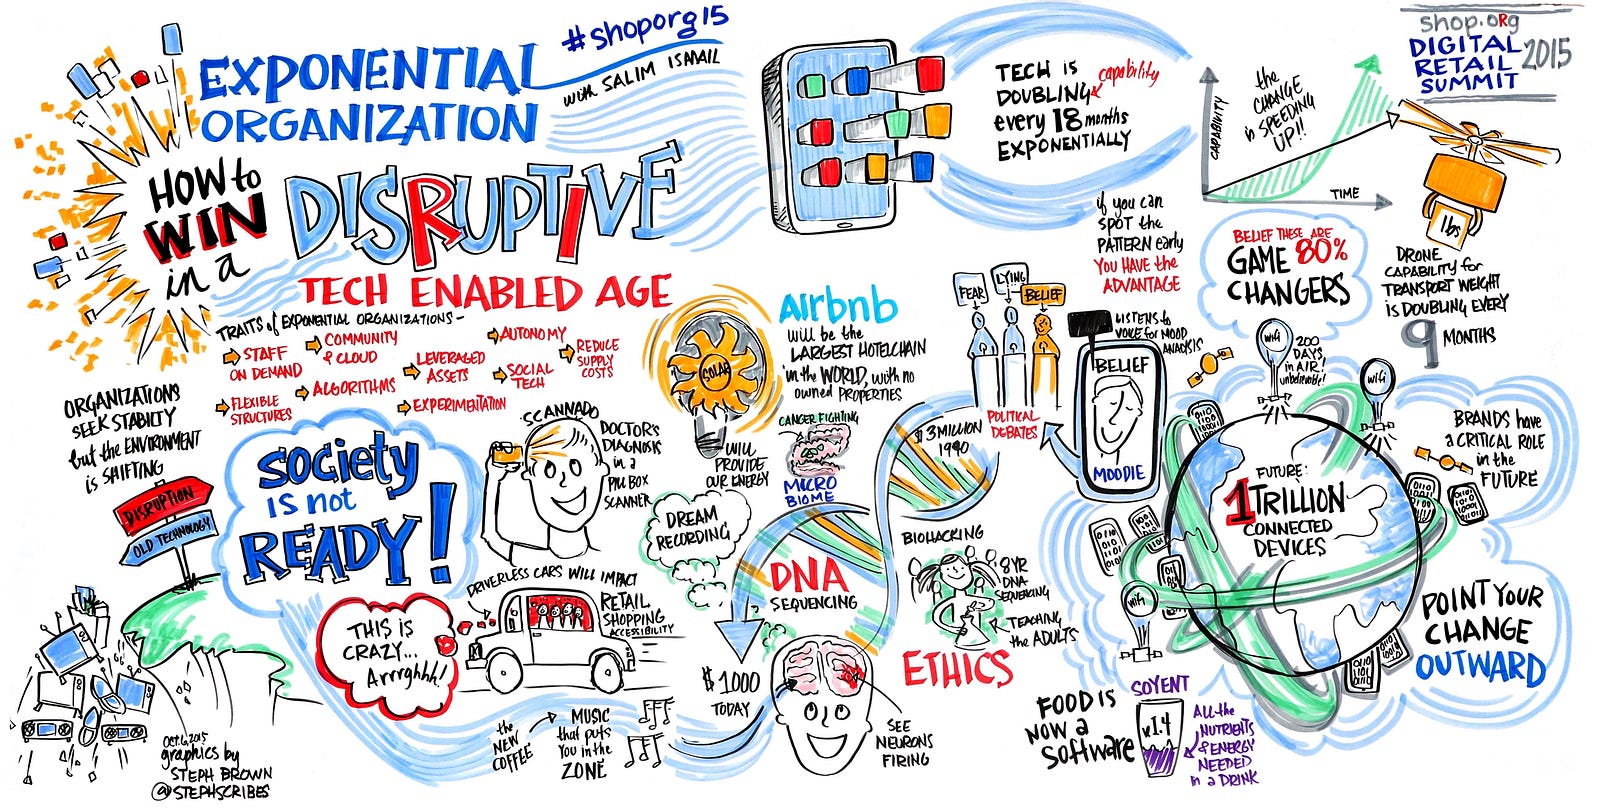 #shoporg15
EXPONENTIAL
ORGANIZATION
with SALIM ISMAIL
HOW to
WIN
in a
DISRUPTIVE
TECH ENABLED AGE
TRAITS of EXPONENTIAL ORGANIZATIONS-
STAFF
ON DEMAND
COMMUNITY
& CLOUD
FLEXIBLE
STRUCTURES
ALGORITHMS
LEVERAGED
ASSETS
EXPERIMENTATION
AUTONOMY
SOCIAL
TECH
REDUCE
SUPPLY
COSTS
ORGANIZATIONS
SEEK STABILTY
but the ENVIRONMENT
is SHIFTING
DISRUPTION
OLD TECHNOLOGY
Society
is not
READY!
SCANNADO
DOCTOR'S
DIAGNOSIS
in a
PILL BOX
SCANNER
DRIVERLESS CARS WILL IMPACT
RETAIL
SHOPPING
ACCESSIBILITY
THIS IS
CRAZY...
Arrrghhh!
the
NEW
COFFEE
MUSIC
that puts
YOU in the
ZONE
OCT.6,2015
graphics by
STEPH BROWN
@STEPHSCRIBES
SOLAR
WILL
PROVIDE
OUR ENERGY
Airbnb
will be the
LARGEST HOTELCHAIN
in the WORLD, with no
owned PROPERTIES
CANCER FIGHTING
MICRO
BIOME
DREAM
RECORDING
$3MILLION
1990
DNA
SEQUENCING
$1000
TODAY
SEE
NEURONS
FIRING
BIOHACKING
8YR
DNA
SEQUENCING
TEACHING
the ADULTS
ETHICS
TECH IS
DOUBLING
capability
every 18 months
EXPONENTIALLY
CAPABILITY
TIME
the
CHANGE
is SPEEDING
UP!!
shop.org
DIGITAL
RETAIL
SUMMIT
2015
if you can
SPOT the
PATTERN early
YOU HAVE the
ADVANTAGE
BELIEF THESE ARE
GAME 80%
CHANGERS
1lbs
DRONE
CAPABILITY for
TRANSPORT WEIGHT
is DOUBLING EVERY
9
MONTHS
FEAR
LYING
BELIEF
POLITICAL
DEBATES
LISTENS to
VOICE for MOOD
ANALYSIS
BELIEF
MOODIE
wifi
200
DAYS
in AIR!
unbelievable!
wifi
wifi
FUTURE:
1 TRILLION
CONNECTED
DEVICES
BRANDS have
a CRITICAL ROLE
in the
FUTURE
POINT YOUR
CHANGE
OUTWARD
FOOD IS
NOW a
Software
SOYENT
v1.4
ALL the
NUTRIENTS
& ENERGY
NEEDED
in a DRINK